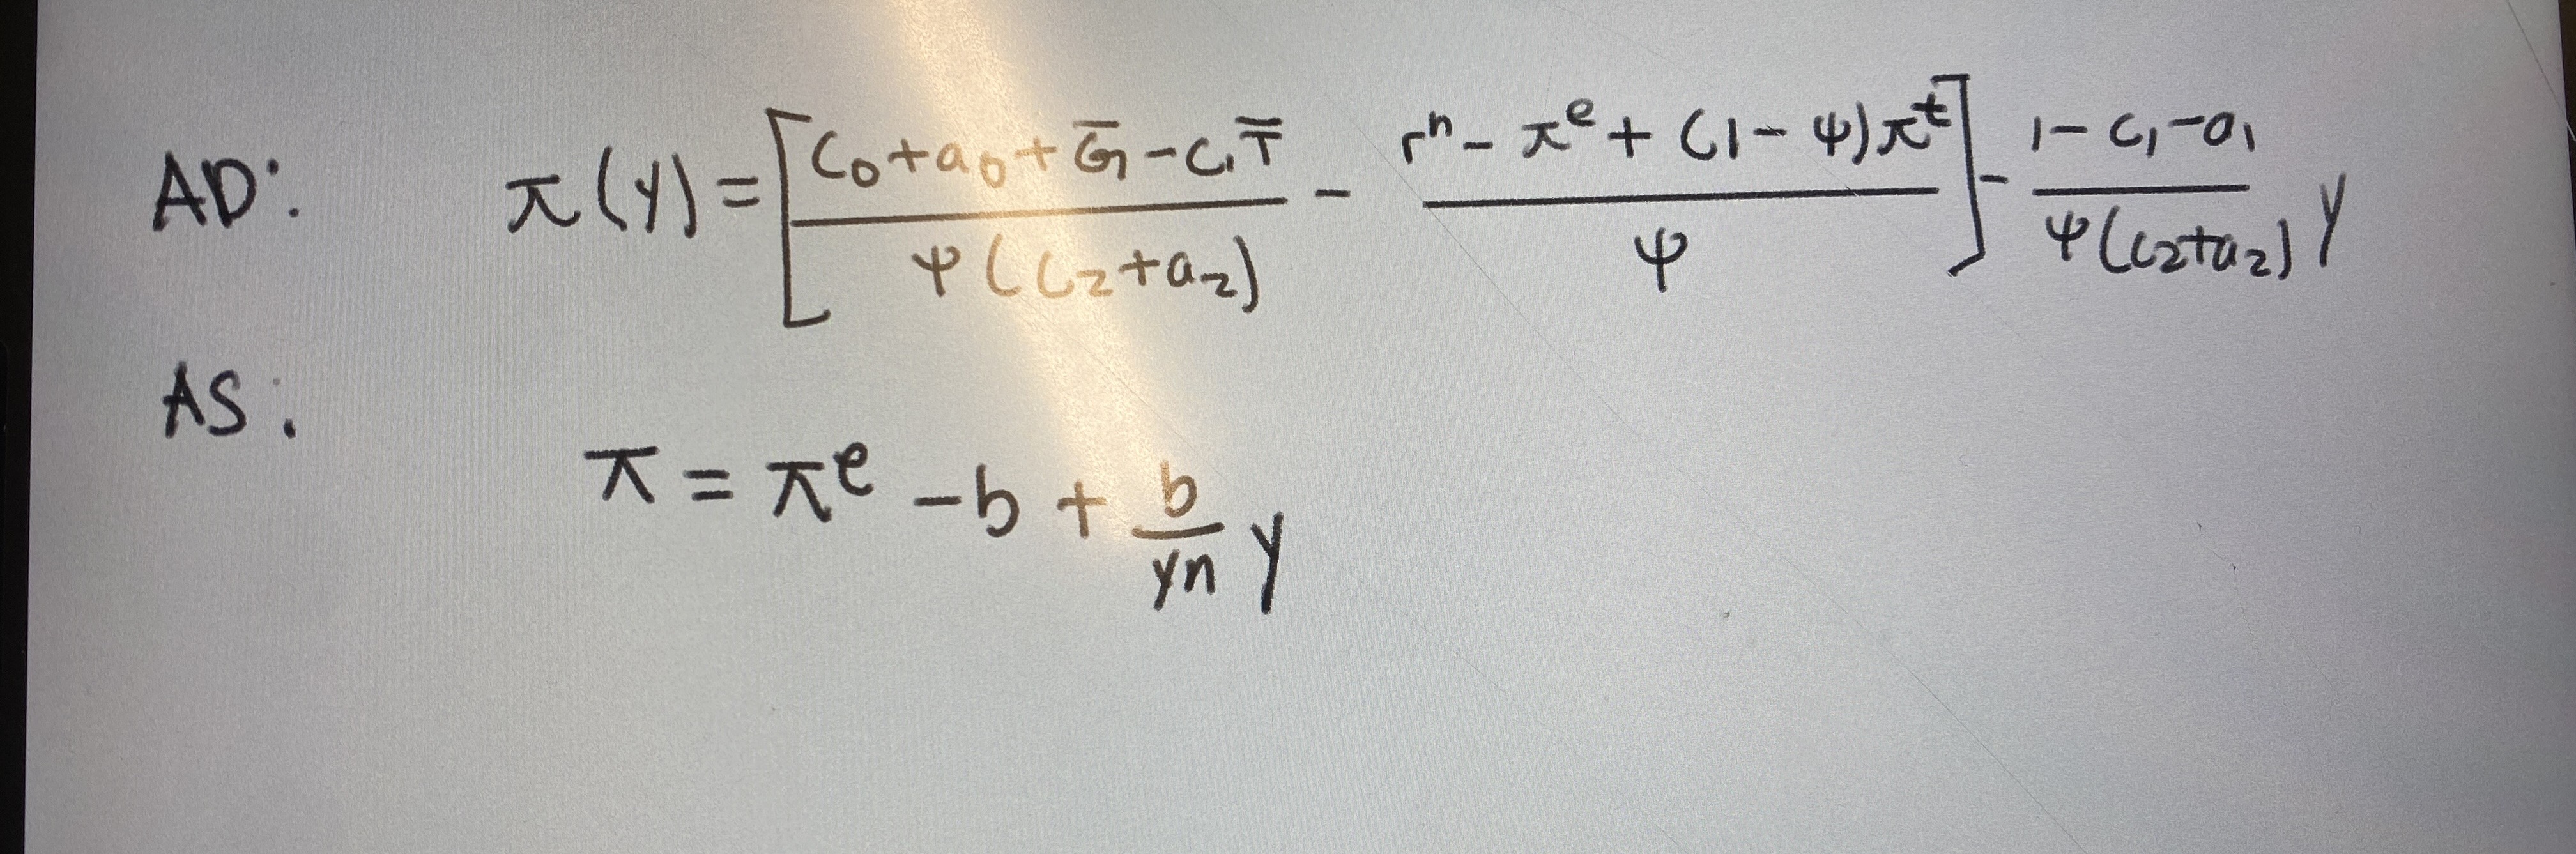 AD: π(y) = [ (c₀+a₀+G̅−c₁T̿)/(ψ(c₂+a₂)) − (rⁿ−πᵉ+(1−ψ)πᵗ)/ψ ] − (1−c₁−a₁)/(ψ(c₂+a₂)) y
AS: 
π = πᵉ −b + b/yn y